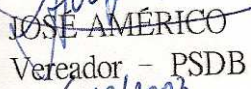 JOSÉ AMÉRICO
Vereador – PSDB